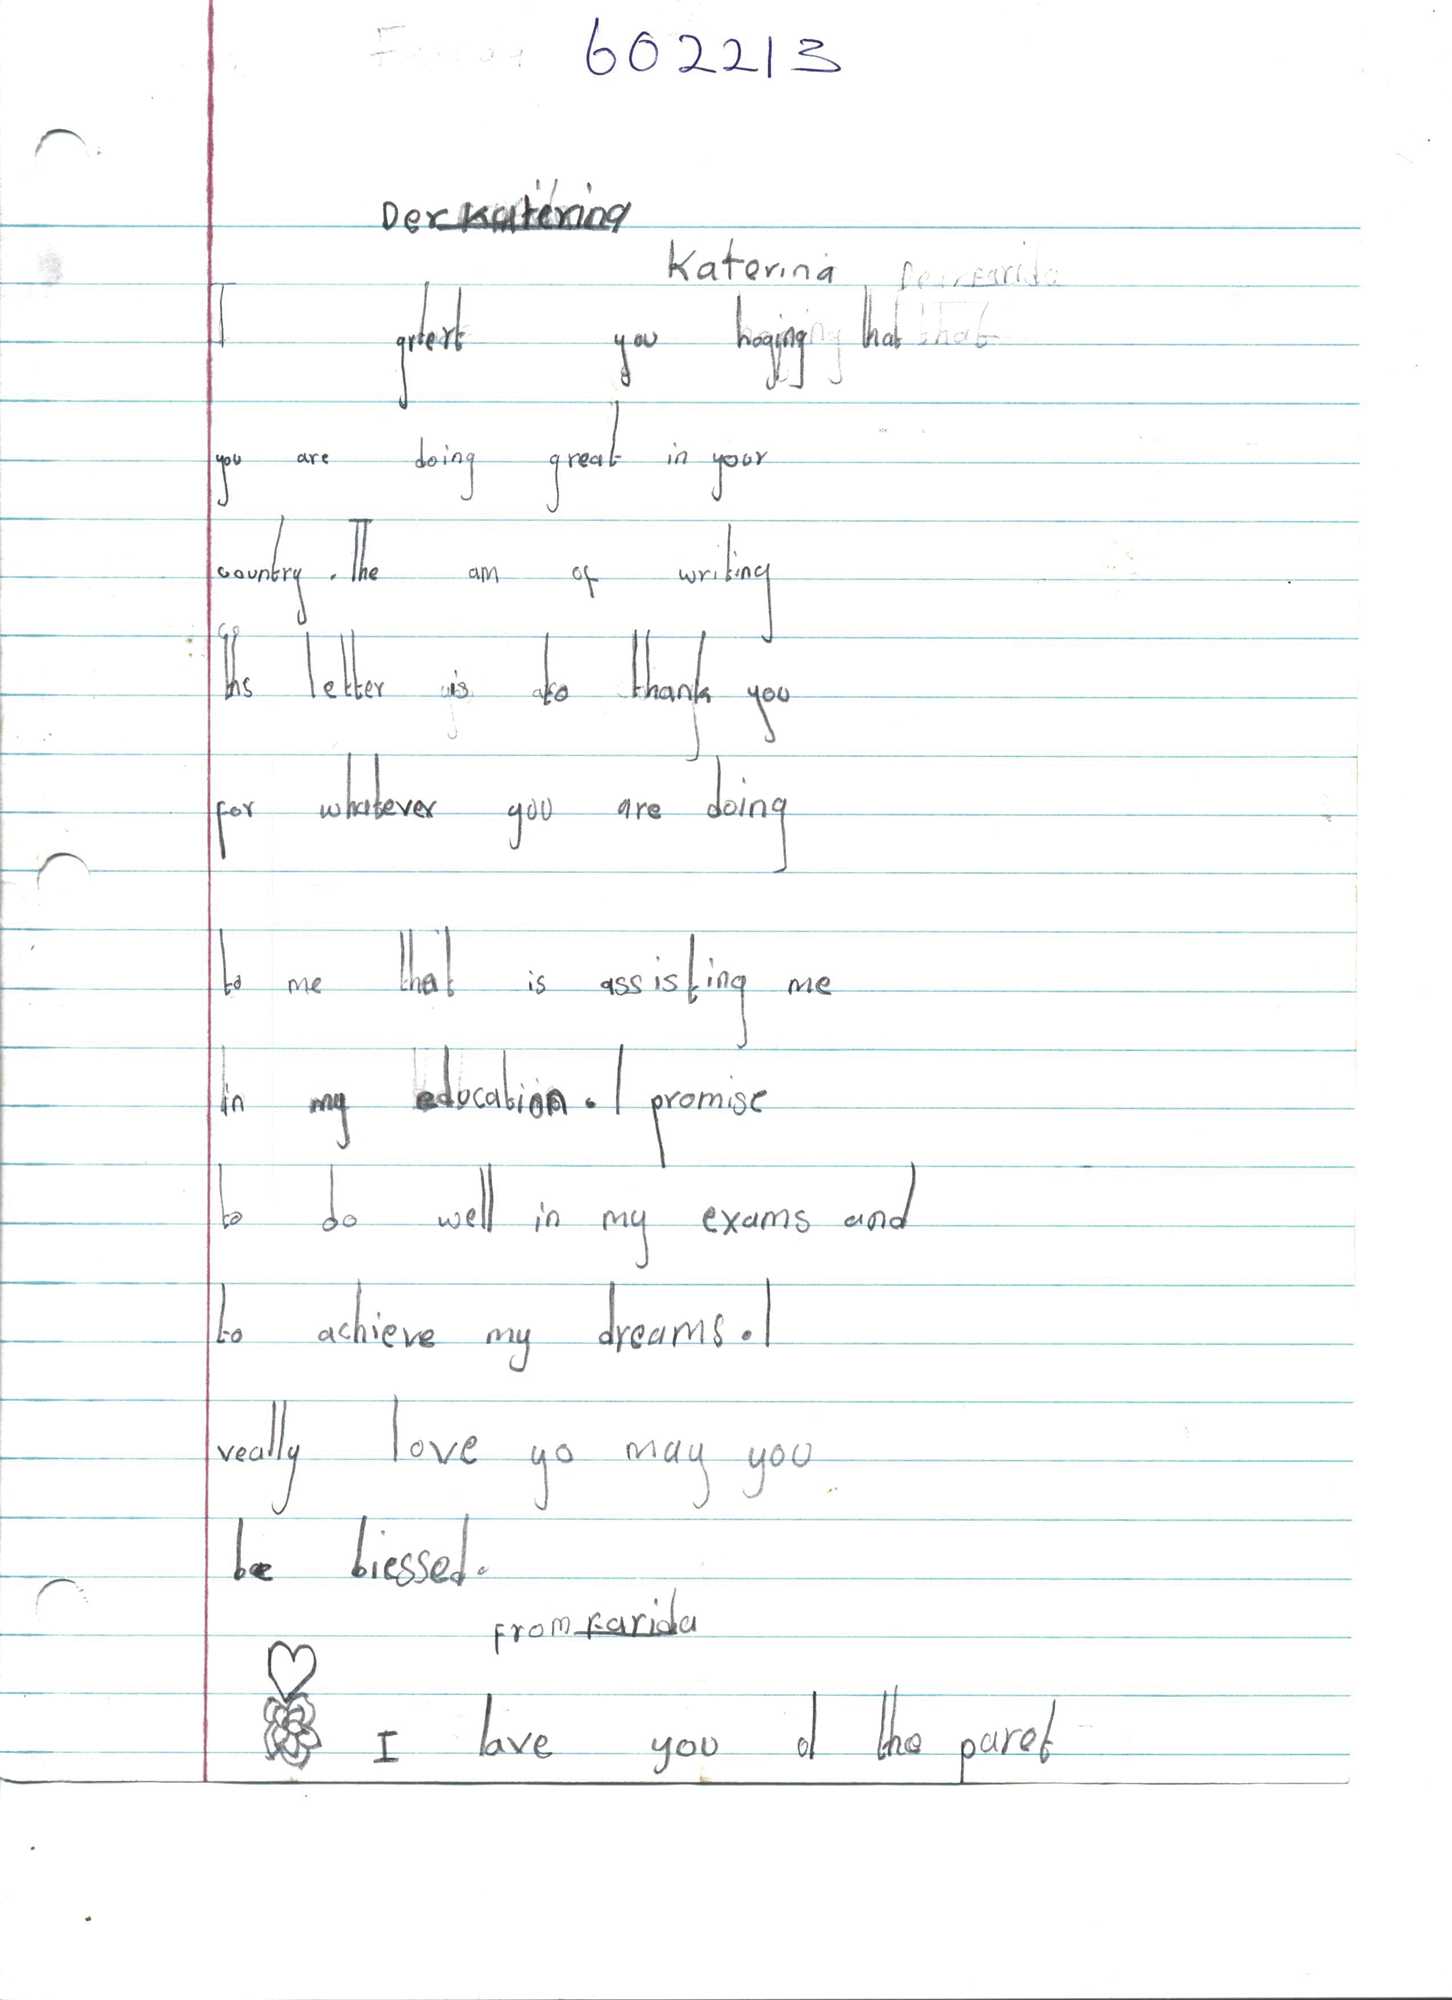 602213
Der Katerina
Katerina
I grtert you hoging that
you are doing great in your
country. The am of writing
ths letter is to thank you
for whatever you are doing
to me that is assisting me
in my education. I promise
to do well in my exams and
to achieve my dreams. I
really love yo may you
be biessed.
From Farida
I lave you d the paret